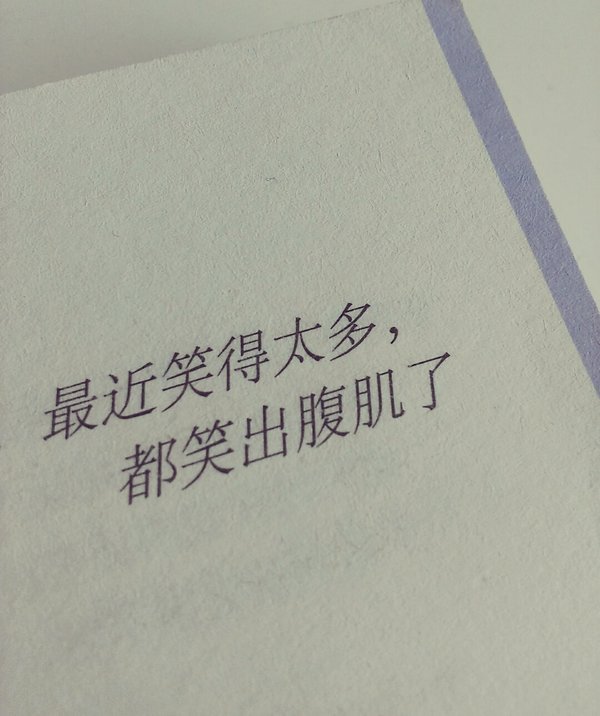 最近笑得太多，
都笑出腹肌了